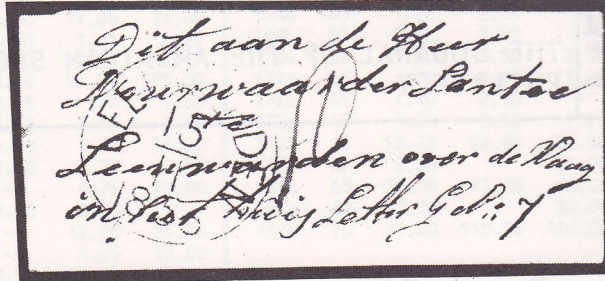 Dit aan de Heer
Deurwaarder Lantee
te
Leeuwarden over de Waag
in het huis Letter G No: 7